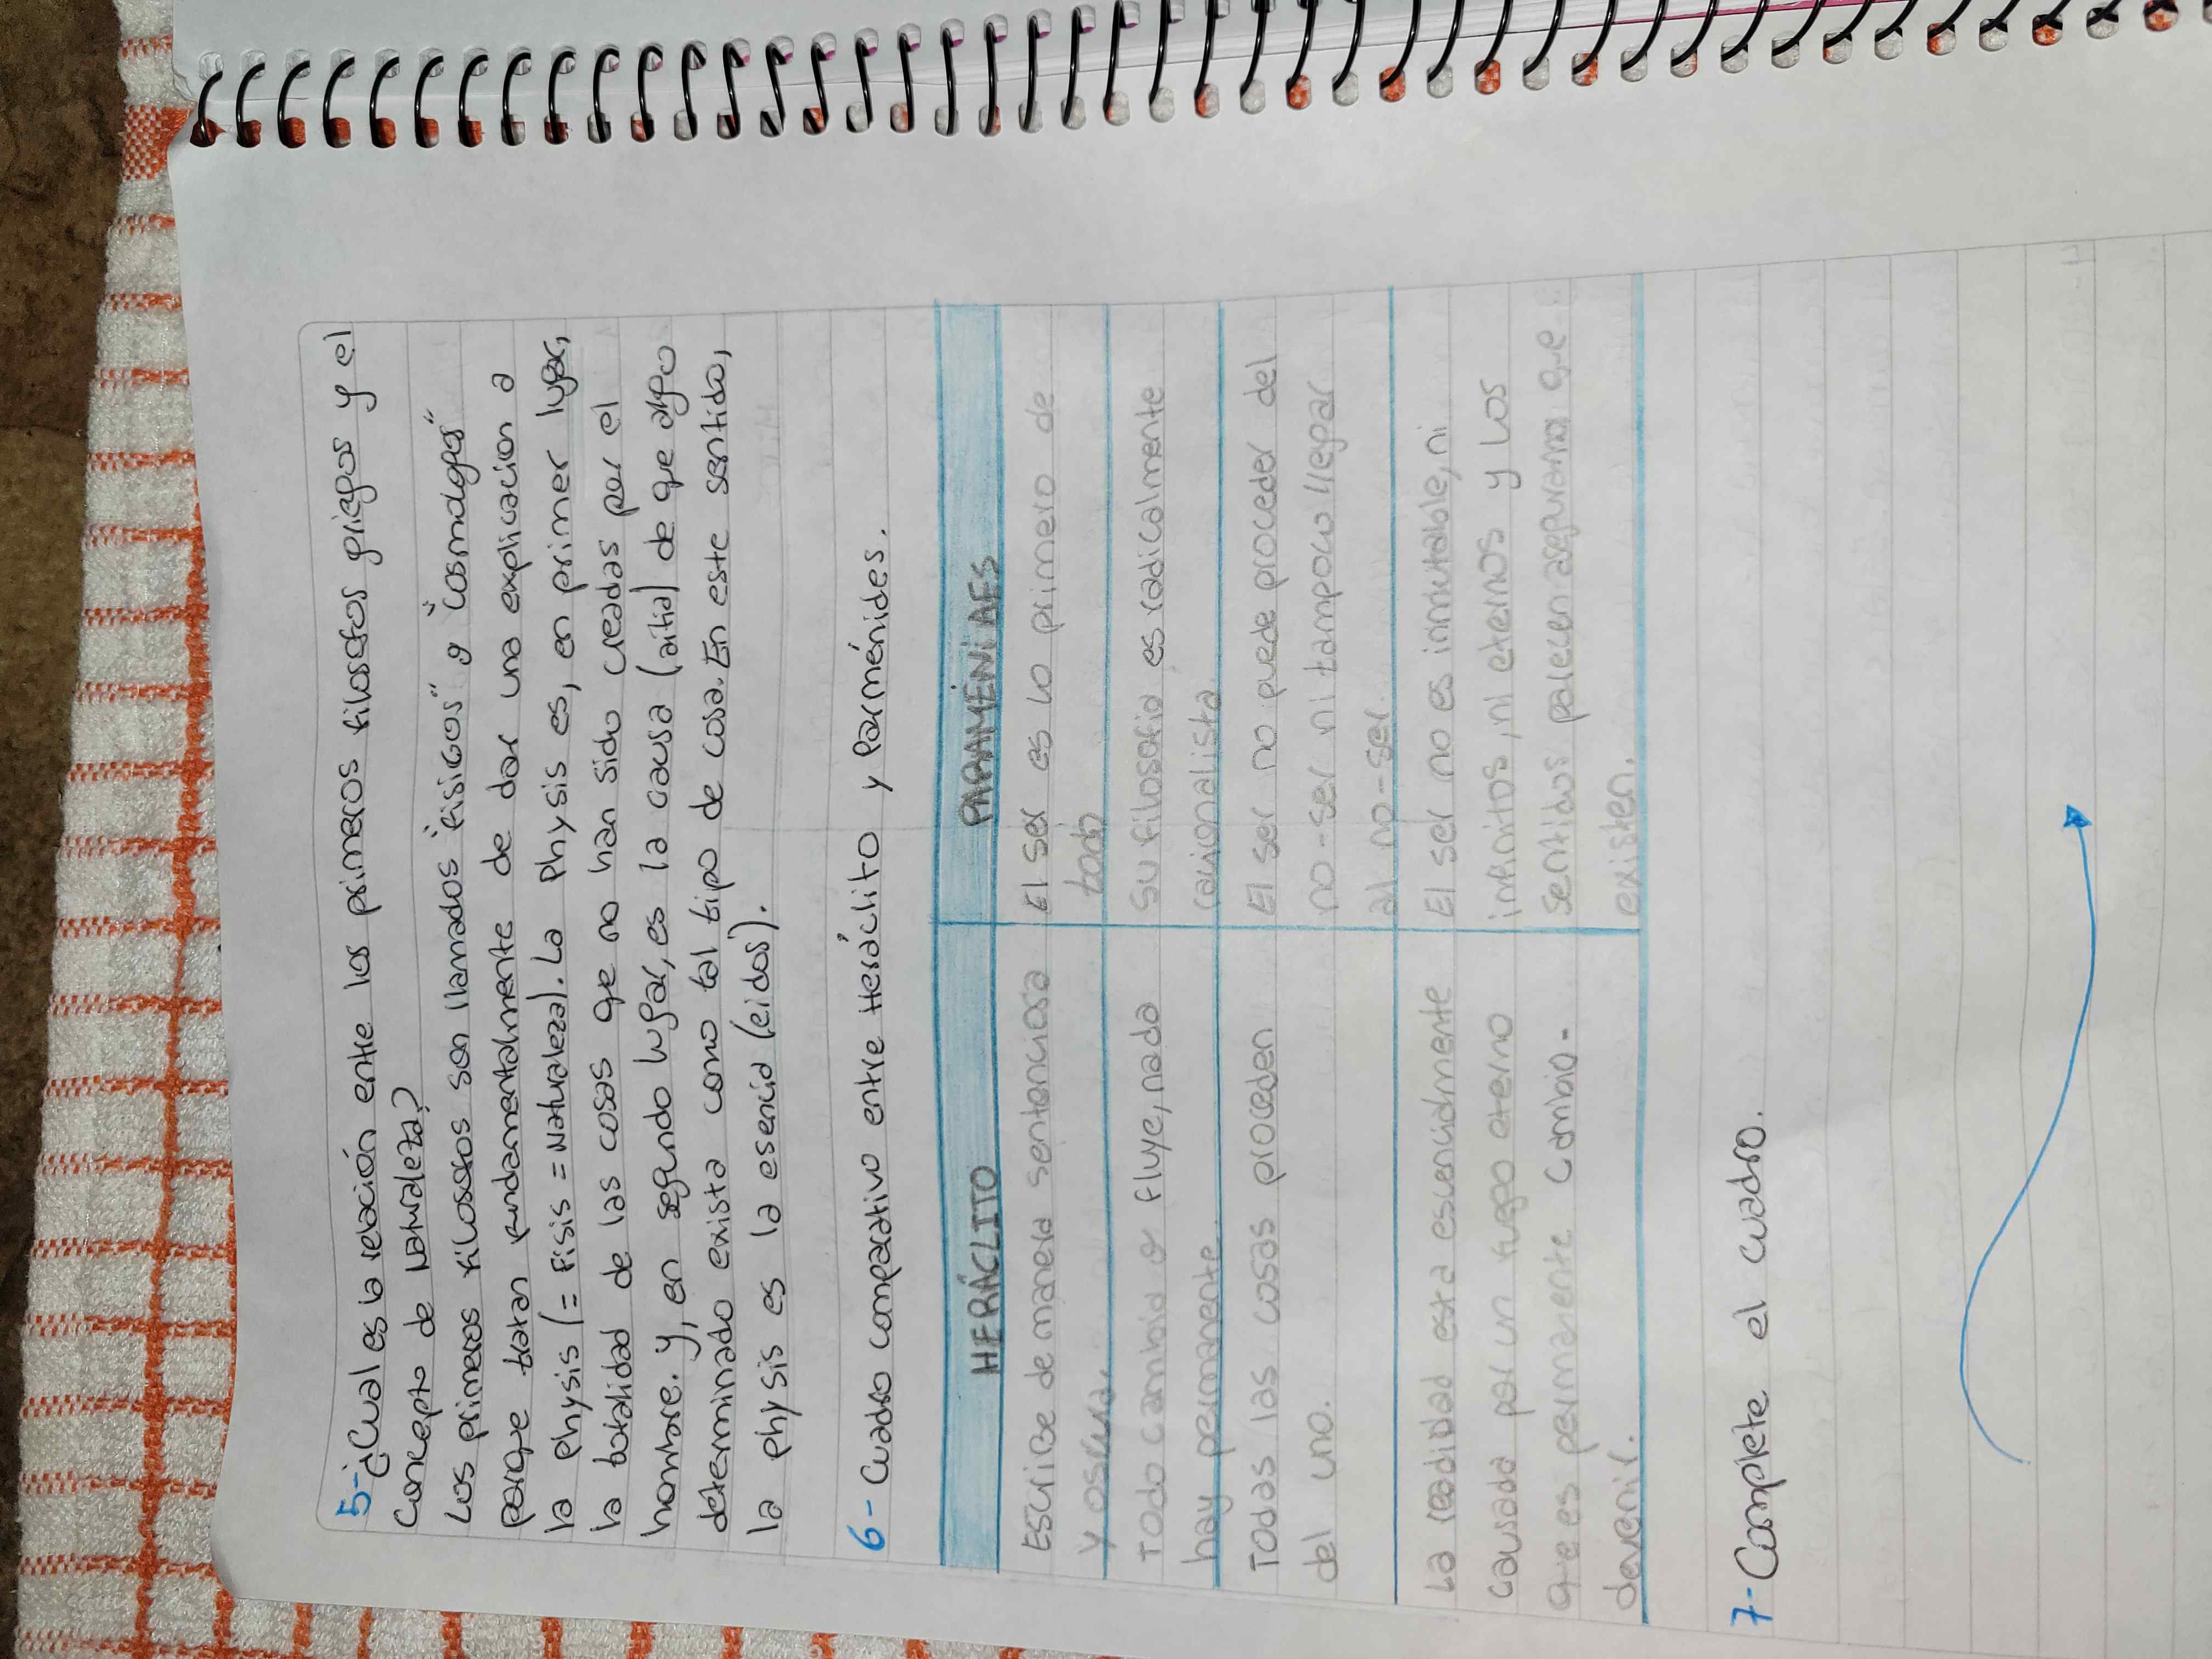 5- ¿Cual es la relación entre los primeros filosofos griegos y el
Concepto de Naturaleza?
Los primeros filosofos son llamados "fisicos" y "cosmologos"
porque tratan fundamentalmente de dar una explicacion a
la physis (= Fisis = Naturaleza). La Physis es, en primer lugar,
la totalidad de las cosas que no han sido creadas por el
hombre. y, en segundo lugar, es la causa (aitia) de que algo
determinado exista como tal tipo de cosa. En este sentido,
la physis es la esencia (eidos).
6- Cuadro comparativo entre Heráclito y Parménides.
HERÁCLITO
PARAMÉNIDES
Escribe de manera sentenciosa
y oscura.
El ser es lo primero de
todo
Todo cambia o fluye, nada
hay permanente.
Su filosofia es radicalmente
racionalista
Todas las cosas proceden
del uno.
El ser no puede proceder del
no-ser ni tampoco llegar
al no-ser.
La realidad esta escencialmente
causada por un fuego eterno
que es permanente cambio-
devenir.
El ser no es inmutable, ni
infinitos, ni eternos y los
sentidos parecen asegurarnos que
existen.
7- Complete el cuadro.